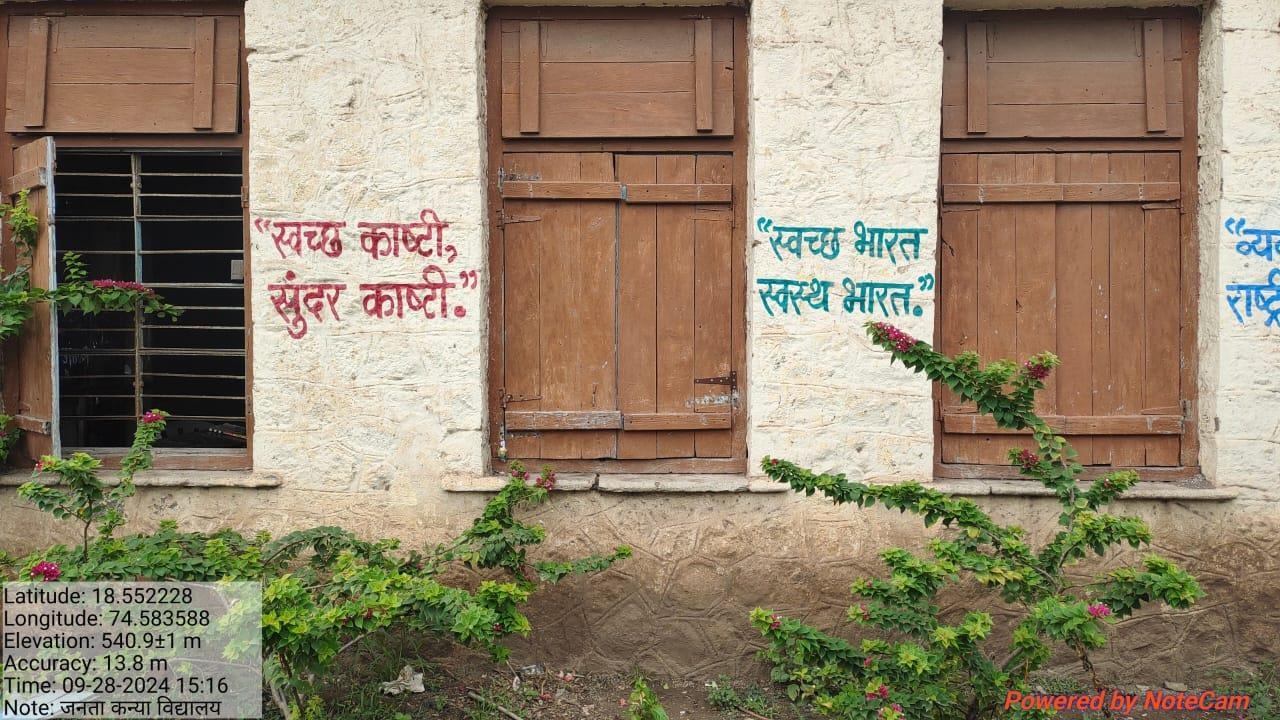 “स्वच्छ काष्टी,
सुंदर काष्टी.”
“स्वच्छ भारत
स्वस्थ भारत.”
Latitude: 18.552228
Longitude: 74.583588
Elevation: 540.9±1 m
Accuracy: 13.8 m
Time: 09-28-2024 15:16
Note: जनता कन्या विद्यालय
Powered by NoteCam